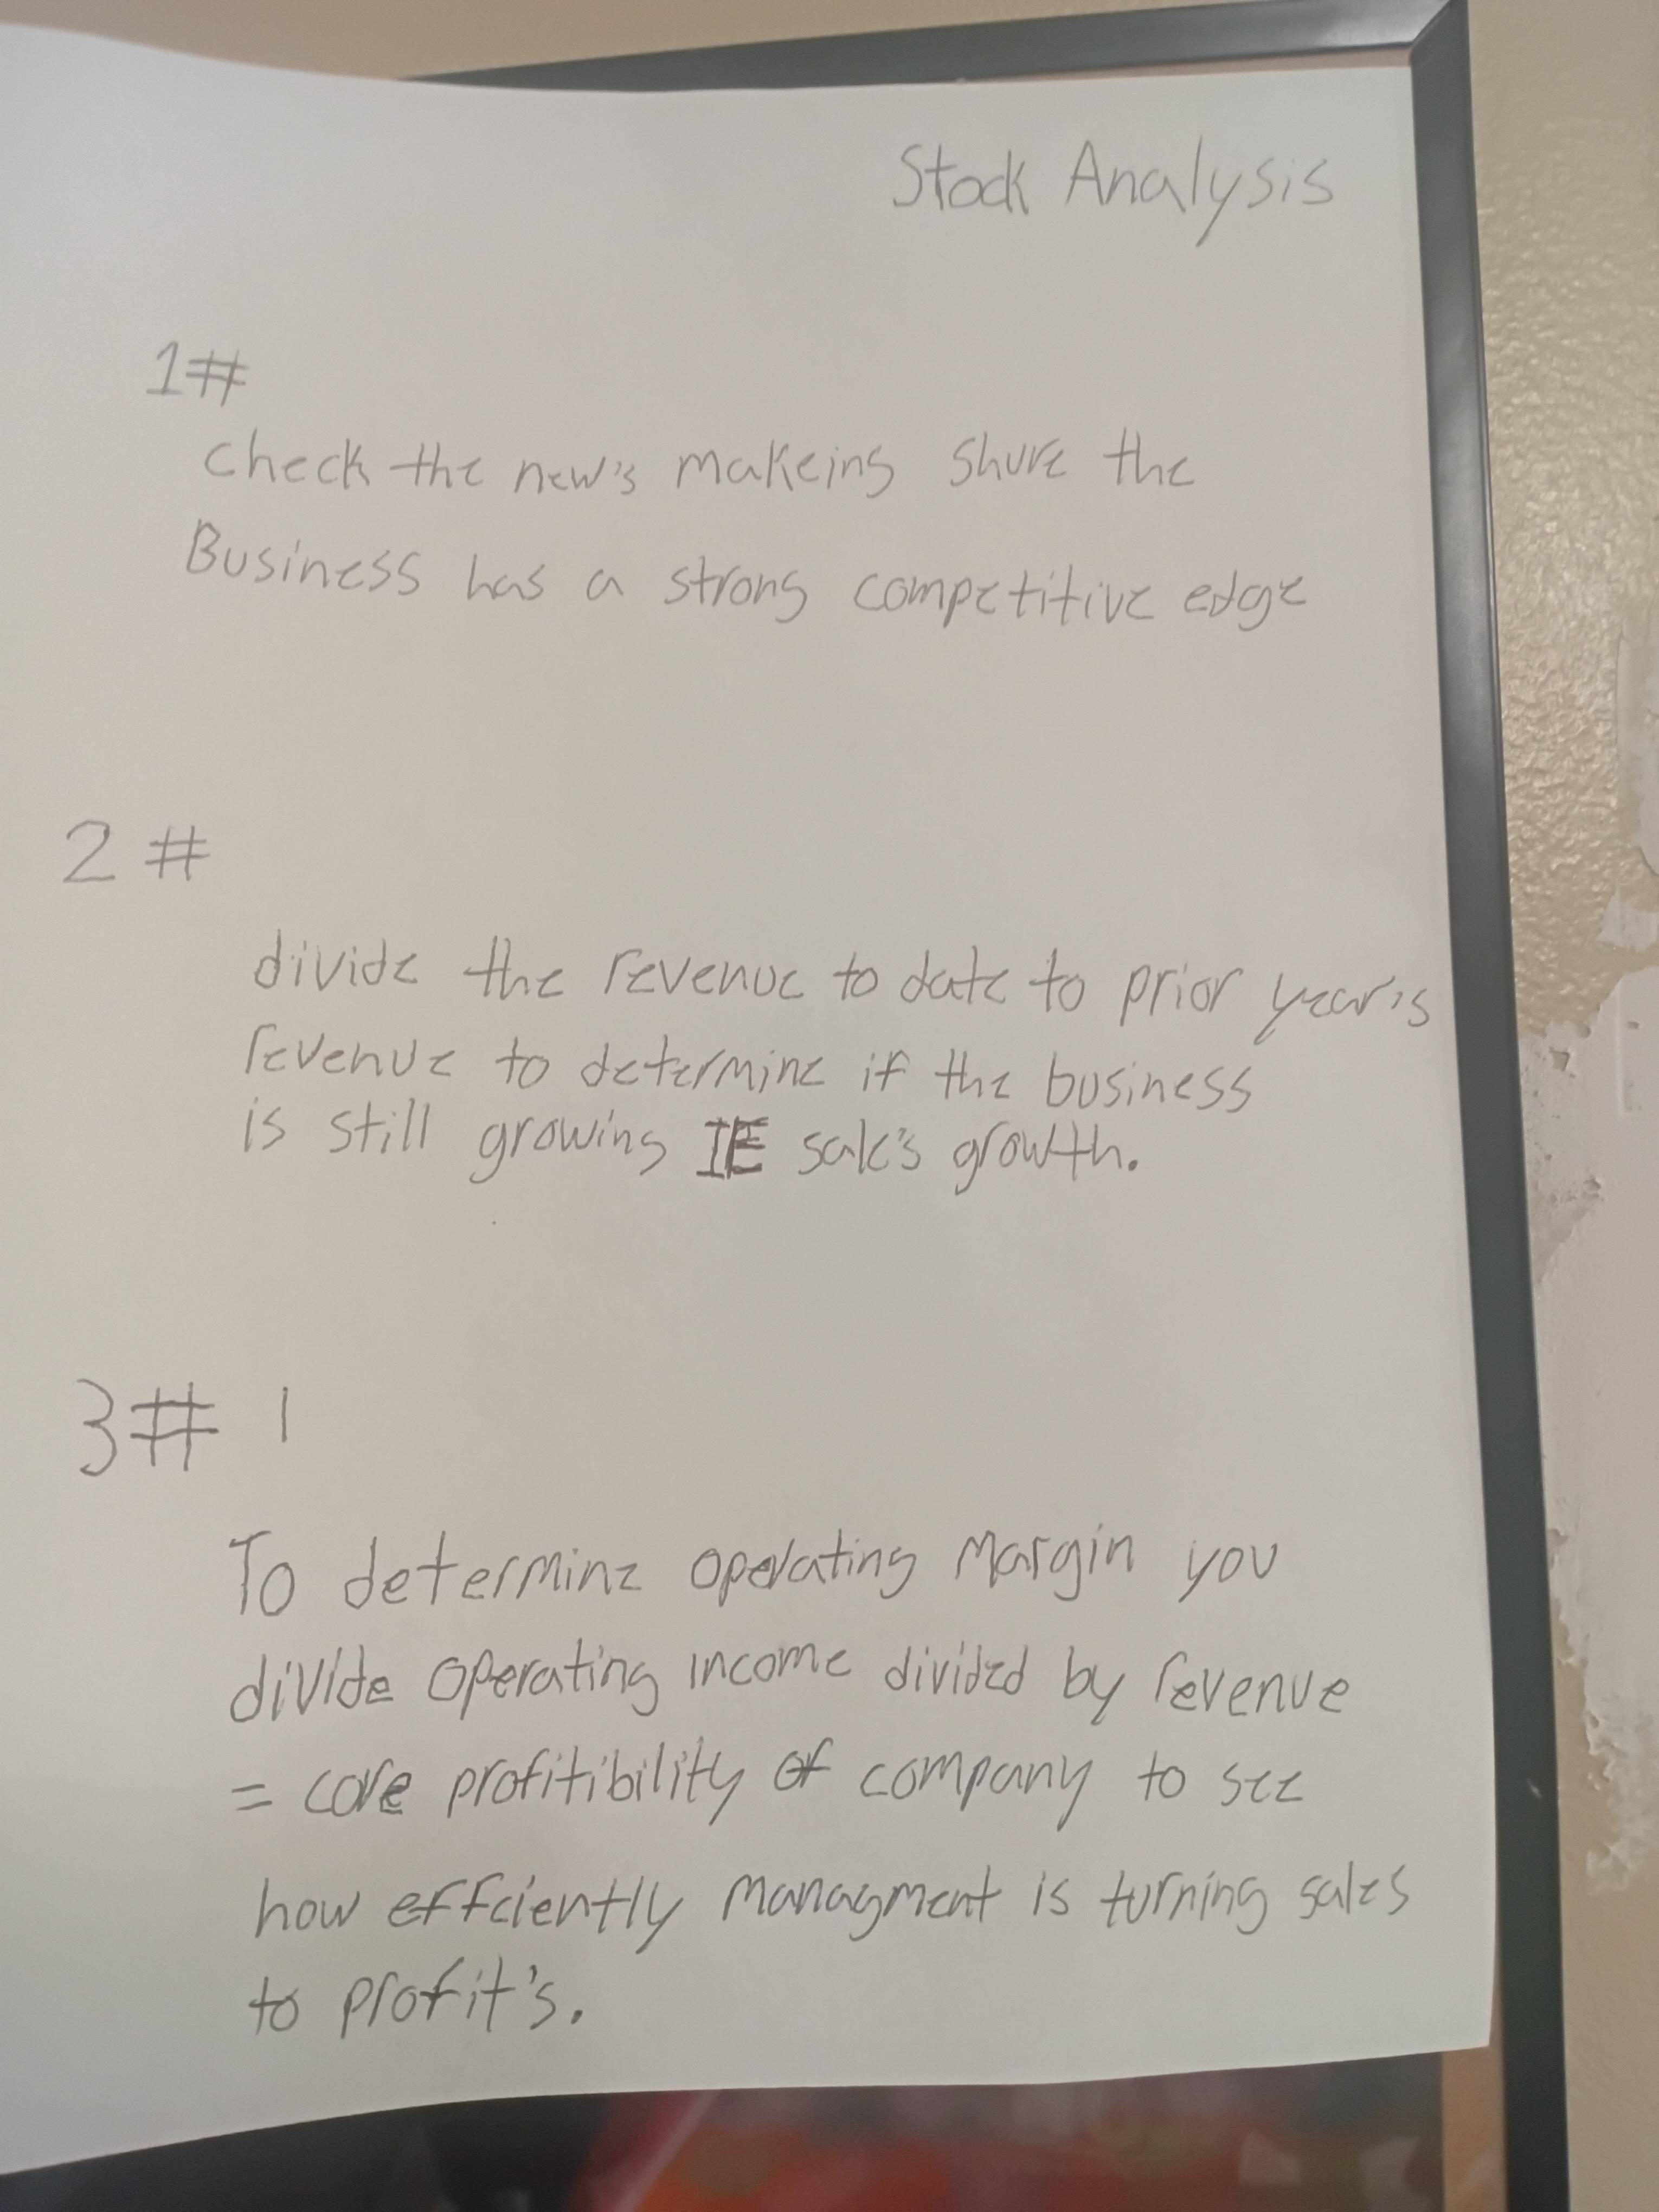 Stock Analysis
1#
check the new's makeing shure the
Business has a strong competitive edge
2 #
divide the revenue to date to prior year's
revenue to determine if the business
is still growing IE sale's growth.
3# 1
To determine operating Margin you
divide operating income divided by revenue
= core profitibility of company to see
how effciently managment is turning sales
to profit's.